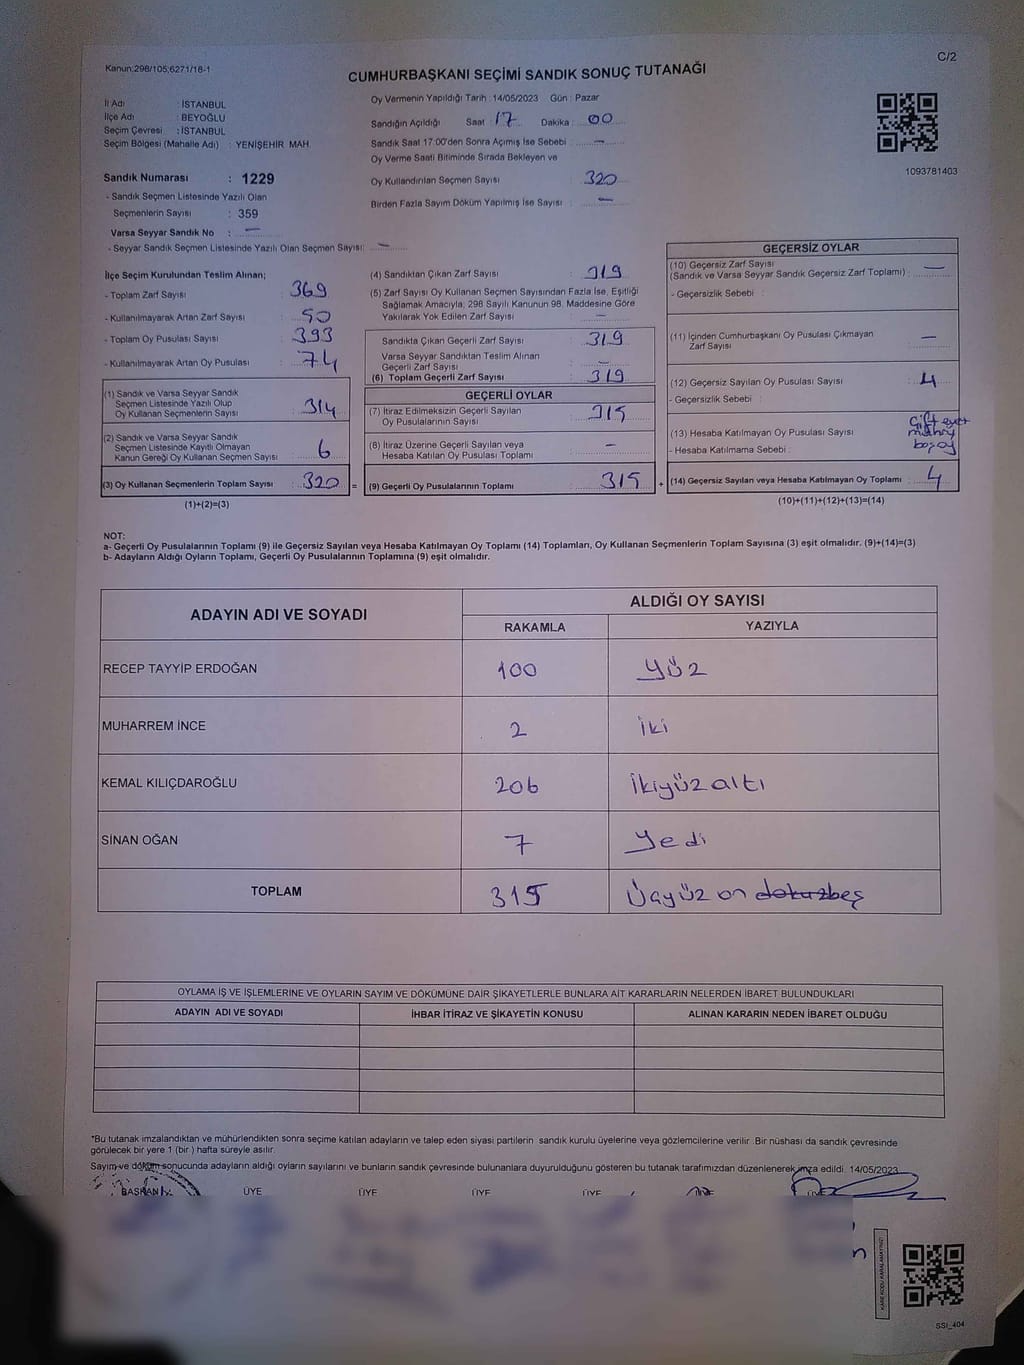 Kanun:298/105;6271/18-1
C/2
CUMHURBAŞKANI SEÇİMİ SANDIK SONUÇ TUTANAĞI
İl Adı : İSTANBUL
İlçe Adı : BEYOĞLU
Seçim Çevresi : İSTANBUL
Seçim Bölgesi (Mahalle Adı) : YENİŞEHİR MAH.
Sandık Numarası : 1229
- Sandık Seçmen Listesinde Yazılı Olan
Seçmenlerin Sayısı : 359
Varsa Seyyar Sandık No : —
- Seyyar Sandık Seçmen Listesinde Yazılı Olan Seçmen Sayısı: —
Oy Vermenin Yapıldığı Tarih : 14/05/2023 Gün : Pazar
Sandığın Açıldığı Saat : 17 Dakika : 00
Sandık Saat 17:00'den Sonra Açımış İse Sebebi : —
Oy Verme Saati Bitiminde Sırada Bekleyen ve
Oy Kullandırılan Seçmen Sayısı : 320
Birden Fazla Sayım Döküm Yapılmış İse Sayısı : —
1093781403
İlçe Seçim Kurulundan Teslim Alınan;
- Toplam Zarf Sayısı : 369
- Kullanılmayarak Artan Zarf Sayısı : 50
- Toplam Oy Pusulası Sayısı : 393
- Kullanılmayarak Artan Oy Pusulası : 74
(1) Sandık ve Varsa Seyyar Sandık
Seçmen Listesinde Yazılı Olup
Oy Kullanan Seçmenlerin Sayısı : 314
(2) Sandık ve Varsa Seyyar Sandık
Seçmen Listesinde Kayıtlı Olmayan
Kanun Gereği Oy Kullanan Seçmen Sayısı : 6
(3) Oy Kullanan Seçmenlerin Toplam Sayısı : 320 =
(1)+(2)=(3)
(4) Sandıktan Çıkan Zarf Sayısı : 319
(5) Zarf Sayısı Oy Kullanan Seçmen Sayısından Fazla İse, Eşitliği
Sağlamak Amacıyla; 298 Sayılı Kanunun 98. Maddesine Göre
Yakılarak Yok Edilen Zarf Sayısı : —
Sandıkta Çıkan Geçerli Zarf Sayısı : 319
Varsa Seyyar Sandıktan Teslim Alınan
Geçerli Zarf Sayısı : —
(6) Toplam Geçerli Zarf Sayısı : 319
GEÇERLİ OYLAR
(7) İtiraz Edilmeksizin Geçerli Sayılan
Oy Pusulalarının Sayısı : 315
(8) İtiraz Üzerine Geçerli Sayılan veya
Hesaba Katılan Oy Pusulası Toplamı : —
(9) Geçerli Oy Pusulalarının Toplamı : 315 +
GEÇERSİZ OYLAR
(10) Geçersiz Zarf Sayısı
(Sandık ve Varsa Seyyar Sandık Geçersiz Zarf Toplamı) : —
- Geçersizlik Sebebi :
(11) İçinden Cumhurbaşkanı Oy Pusulası Çıkmayan
Zarf Sayısı : —
(12) Geçersiz Sayılan Oy Pusulası Sayısı : 4
- Geçersizlik Sebebi :
(13) Hesaba Katılmayan Oy Pusulası Sayısı :
- Hesaba Katılmama Sebebi :
(14) Geçersiz Sayılan veya Hesaba Katılmayan Oy Toplamı : 4
(10)+(11)+(12)+(13)=(14)
NOT:
a- Geçerli Oy Pusulalarının Toplamı (9) ile Geçersiz Sayılan veya Hesaba Katılmayan Oy Toplamı (14) Toplamları, Oy Kullanan Seçmenlerin Toplam Sayısına (3) eşit olmalıdır. (9)+(14)=(3)
b- Adayların Aldığı Oyların Toplamı, Geçerli Oy Pusulalarının Toplamına (9) eşit olmalıdır.
ADAYIN ADI VE SOYADI
ALDIĞI OY SAYISI
RAKAMLA YAZIYLA
RECEP TAYYİP ERDOĞAN 100 yüz
MUHARREM İNCE 2 iki
KEMAL KILIÇDAROĞLU 206 İkiyüz altı
SİNAN OĞAN 7 yedi
TOPLAM 315 Üçyüz on dokuzbeş
OYLAMA İŞ VE İŞLEMLERİNE VE OYLARIN SAYIM VE DÖKÜMÜNE DAİR ŞİKAYETLERLE BUNLARA AİT KARARLARIN NELERDEN İBARET BULUNDUKLARI
ADAYIN ADI VE SOYADI İHBAR İTİRAZ VE ŞİKAYETİN KONUSU ALINAN KARARIN NEDEN İBARET OLDUĞU
*Bu tutanak imzalandıktan ve mühürlendikten sonra seçime katılan adayların ve talep eden siyasi partilerin sandık kurulu üyelerine veya gözlemcilerine verilir. Bir nüshası da sandık çevresinde
görülecek bir yere 1 (bir) hafta süreyle asılır.
Sayım ve döküm sonucunda adayların aldığı oyların sayılarını ve bunların sandık çevresinde bulunanlara duyurulduğunu gösteren bu tutanak tarafımızdan düzenlenerek imza edildi. 14/05/2023
BAŞKAN ÜYE ÜYE ÜYE ÜYE ÜYE
KARE KODU KARALAMAYINIZ!
SSI_404